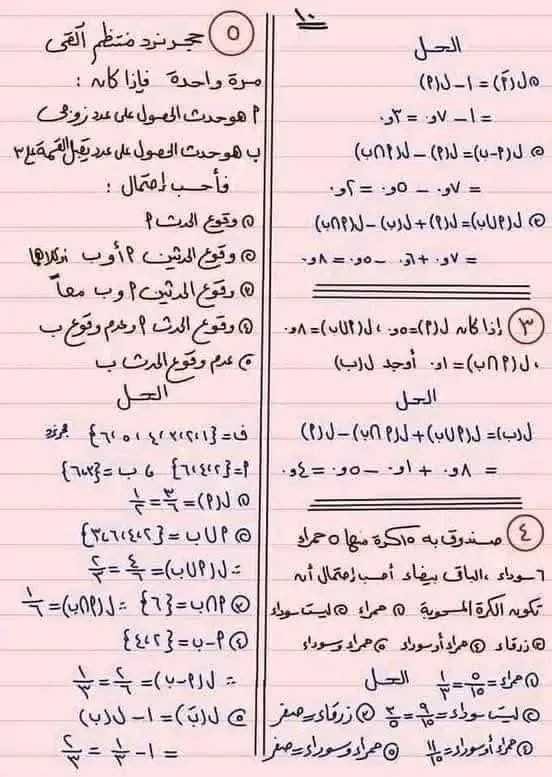 ١٠
الحل
① ل(P̄) = ١ - ل(P)
= ١ - ٧و. = ٣و.
② ل(P-ب) = ل(P) - ل(P∩ب)
= ٧و. - ٥و. = ٢و.
③ ل(P∪ب) = ل(P) + ل(ب) - ل(P∩ب)
= ٧و. + ٦و. - ٥و. = ٨و.
③ إذا كان ل(P) = ٥و. ، ل(P∪ب) = ٨و.
، ل(P∩ب) = ١و. أوجد ل(ب)
الحل
ل(ب) = ل(P∪ب) + ل(P∩ب) - ل(P)
= ٨و. + ١و. - ٥و. = ٤و.
④ صندوق به ١٥ كرة منها ٥ حمراء
٦ سوداء ، الباقى بيضاء أحسب إحتمال أن
تكون الكرة المسحوبة ① حمراء ② ليست سوداء
③ زرقاء ④ حمراء أو سوداء ⑤ حمراء وسوداء
الحل
① حمراء = ٥/١٥ = ١/٣
② ليست سوداء = ٩/١٥ = ٣/٥ ③ زرقاء = صفر
④ حمراء أو سوداء = ١١/١٥ ⑤ حمراء وسوداء = صفر
⑤ حجر نرد منتظم ألقى
مرة واحدة فإذا كان :
P هو حدث الحصول على عدد زوجى
ب هو حدث الحصول على عدد يقبل القسمة على ٣
فأحسب إحتمال :
① وقوع الحدث P
② وقوع الحدثين P أو ب أو كلاهما
③ وقوع الحدثين P و ب معاً
④ وقوع الحدث P وعدم وقوع ب
⑤ عدم وقوع الحدث ب
الحل
ف = {١،٢،٣،٤،٥،٦} حجر نرد
P = {٢،٤،٦} ، ب = {٣،٦}
① ل(P) = ٣/٦ = ١/٢
② P∪ب = {٢،٤،٦،٣}
∴ ل(P∪ب) = ٤/٦ = ٢/٣
③ P∩ب = {٦} ∴ ل(P∩ب) = ١/٦
④ P-ب = {٢،٤}
∴ ل(P-ب) = ٢/٦ = ١/٣
⑤ ل(ب̄) = ١ - ل(ب)
= ١ - ١/٣ = ٢/٣